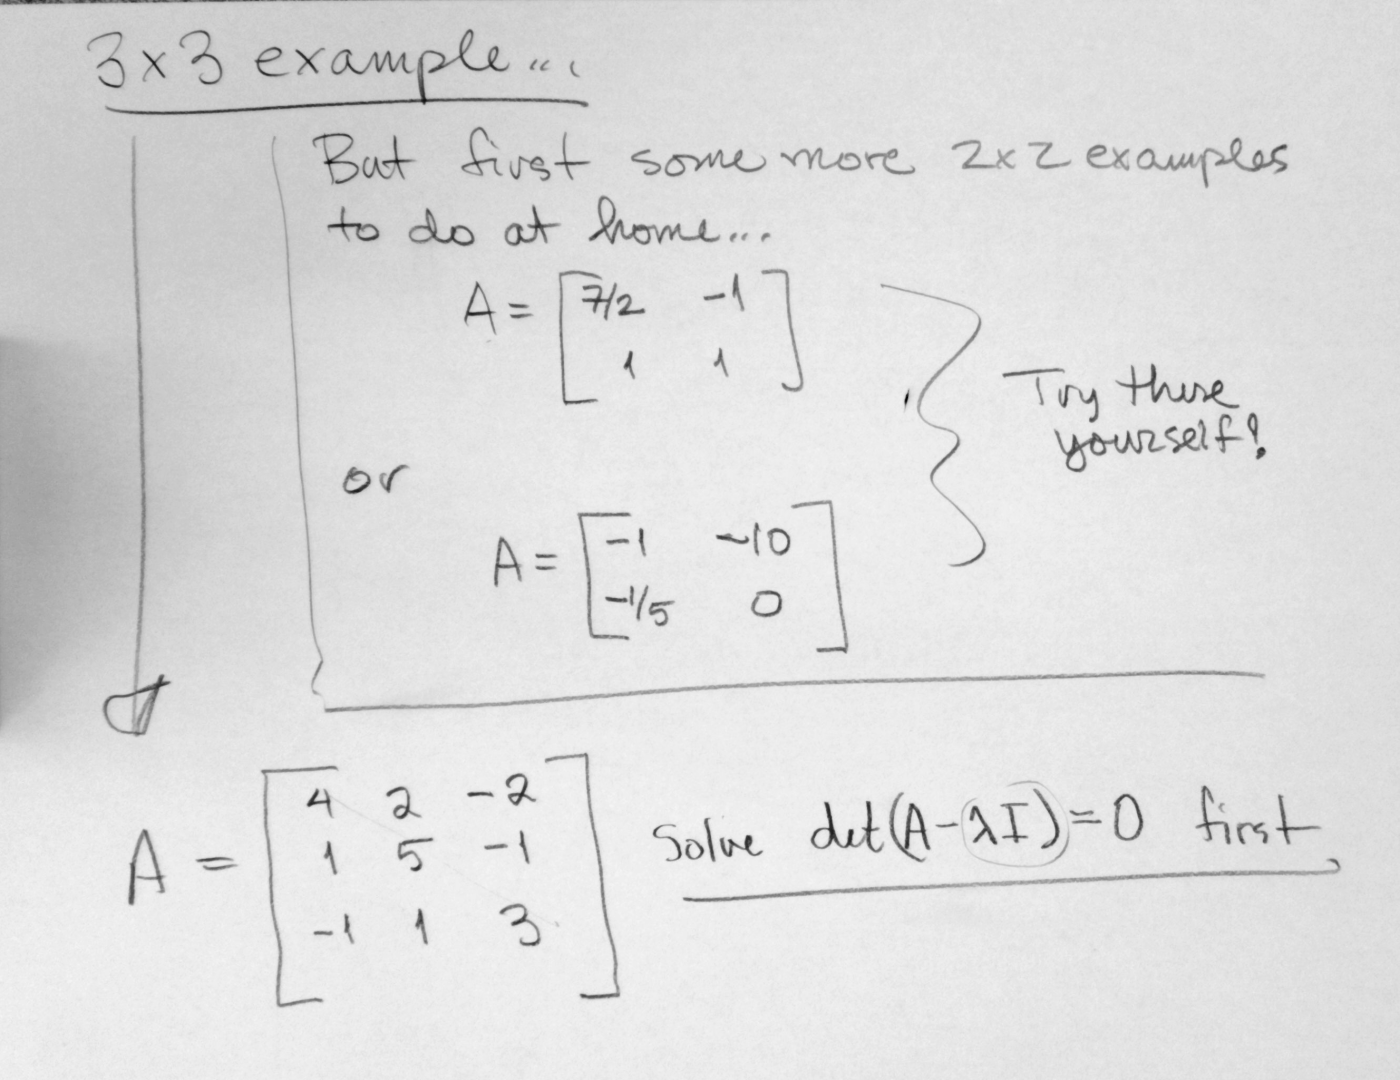 3x3 example...
But first some more 2x2 examples
to do at home...
A = [ 7/2 -1
1 1 ]
Try these
yourself!
or
A = [ -1 -10
-1/5 0 ]
A = [ 4 2 -2
1 5 -1
-1 1 3 ]
Solve det(A-λI)=0 first